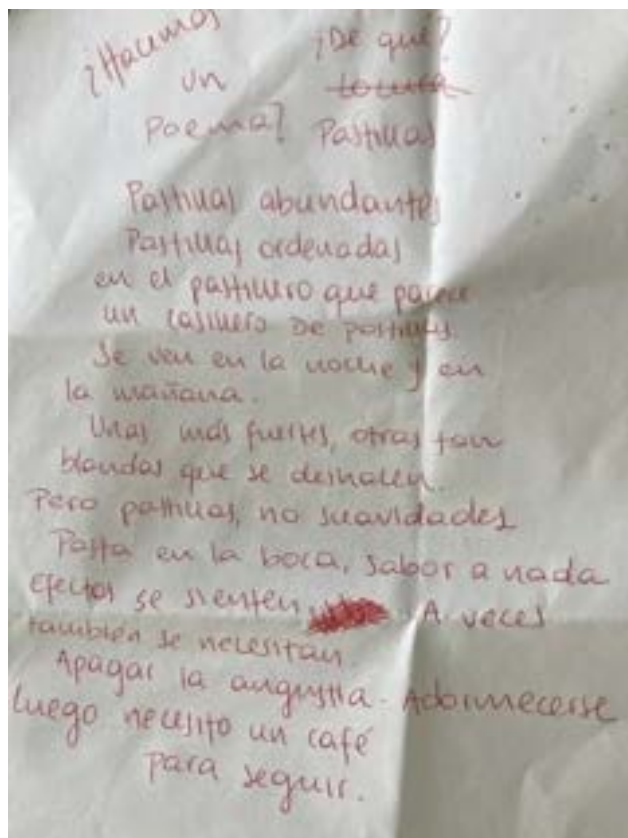 ¿Hacemos
un
poema?
¿De qué?
locura
Pastillas
Pastillas abundantes
Pastillas ordenadas
en el pastillero que parece
un casillero de pastillas.
Se ven en la noche y en
la mañana.
Unas más fuertes, otras tan
blandas que se deshacen.
Pero pastillas, no suavidades
Pasta en la boca, sabor a nada
efectos se sienten A veces
también se necesitan
Apagar la angustia. Adormecerse
luego necesito un café
para seguir.